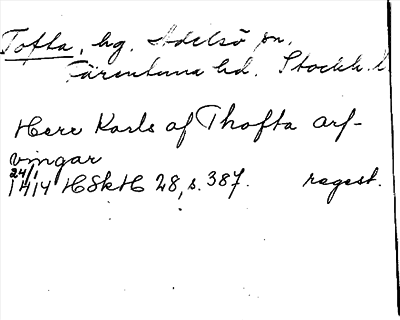 Tofta, hg. Adelsö sn,
Färentuna hd. Stockh. l
Herr Karls af Thofta arf-
vingar
24/1
1414 HSkH 28, s. 387. regest.